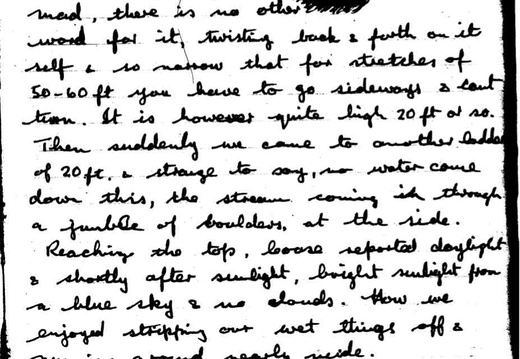 mad, there is no other
word for it, twisting back & forth on it
self & so narrow that for stretches of
50-60 ft you have to go sideways & can't
turn. It is however quite high 20 ft or so.
Then suddenly we came to another ladder
of 20 ft. & strange to say, no water came
down this, the stream coming in through
a jumble of boulders, at the side.
Reaching the top, loose reported daylight
& shortly after sunlight, bright sunlight from
a blue sky & no clouds. How we
enjoyed stripping our wet things off &
around nearly nude.